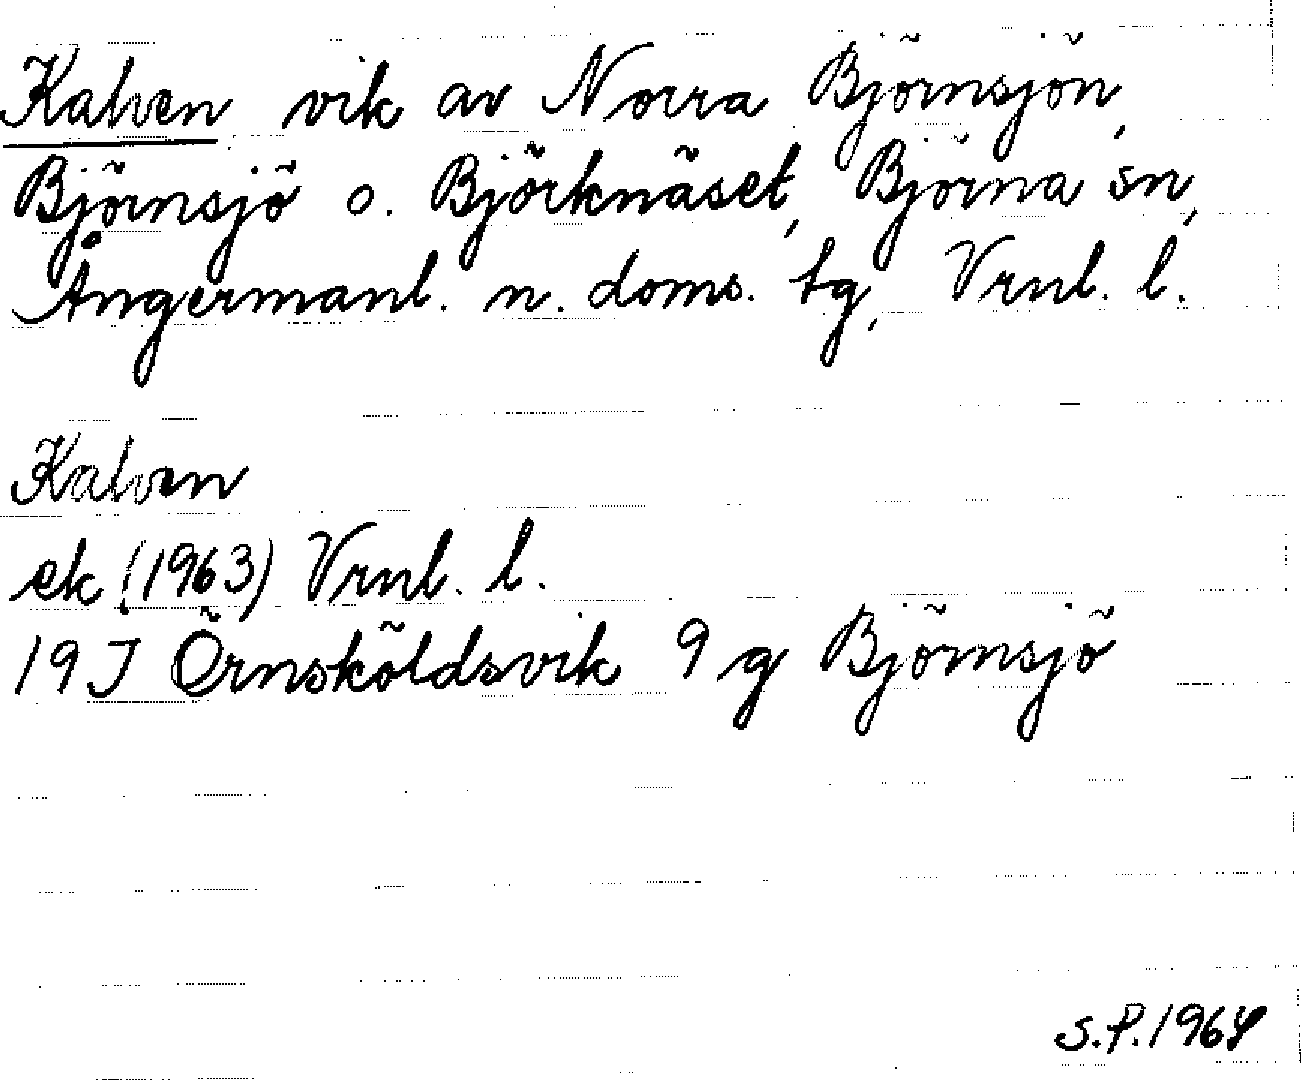 Kalven vik av Norra Björnsjön,
Björnsjö o. Björknäset, Björna sn,
Ångermanl. n. doms. tg, Vrnl. l.
Kalven
ek (1963) Vrnl. l.
19J Örnsköldsvik 9 g Björnsjö
S.P.1964